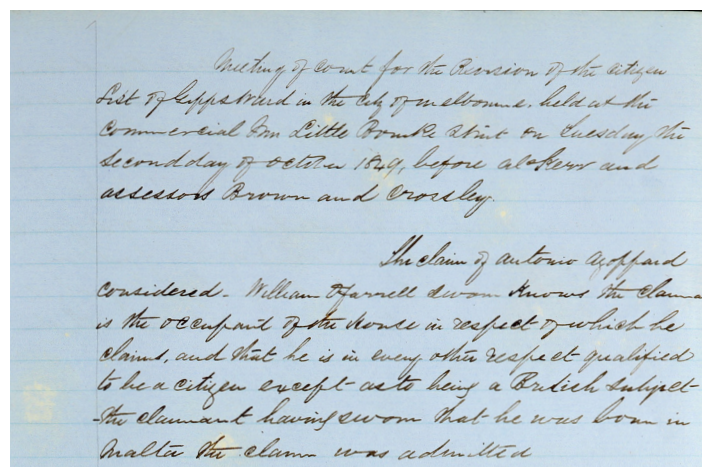 Meeting of Court for the Revision of the Citizen
List of Gipps Ward in the City of Melbourne, held at the
Commercial Inn Little Bourke Street on Tuesday the
second day of October 1849, before al Kerr and
assessors Brown and Crossley.
The claim of Antonio
considered - William O'Farrell sworn Knows the claima
is the occupant of the House in respect of which he
claims, and that he is in every other respect qualified
to be a citizen except as to being a British subject
- the claimant having sworn that he was born in
Malta the claim was admitted